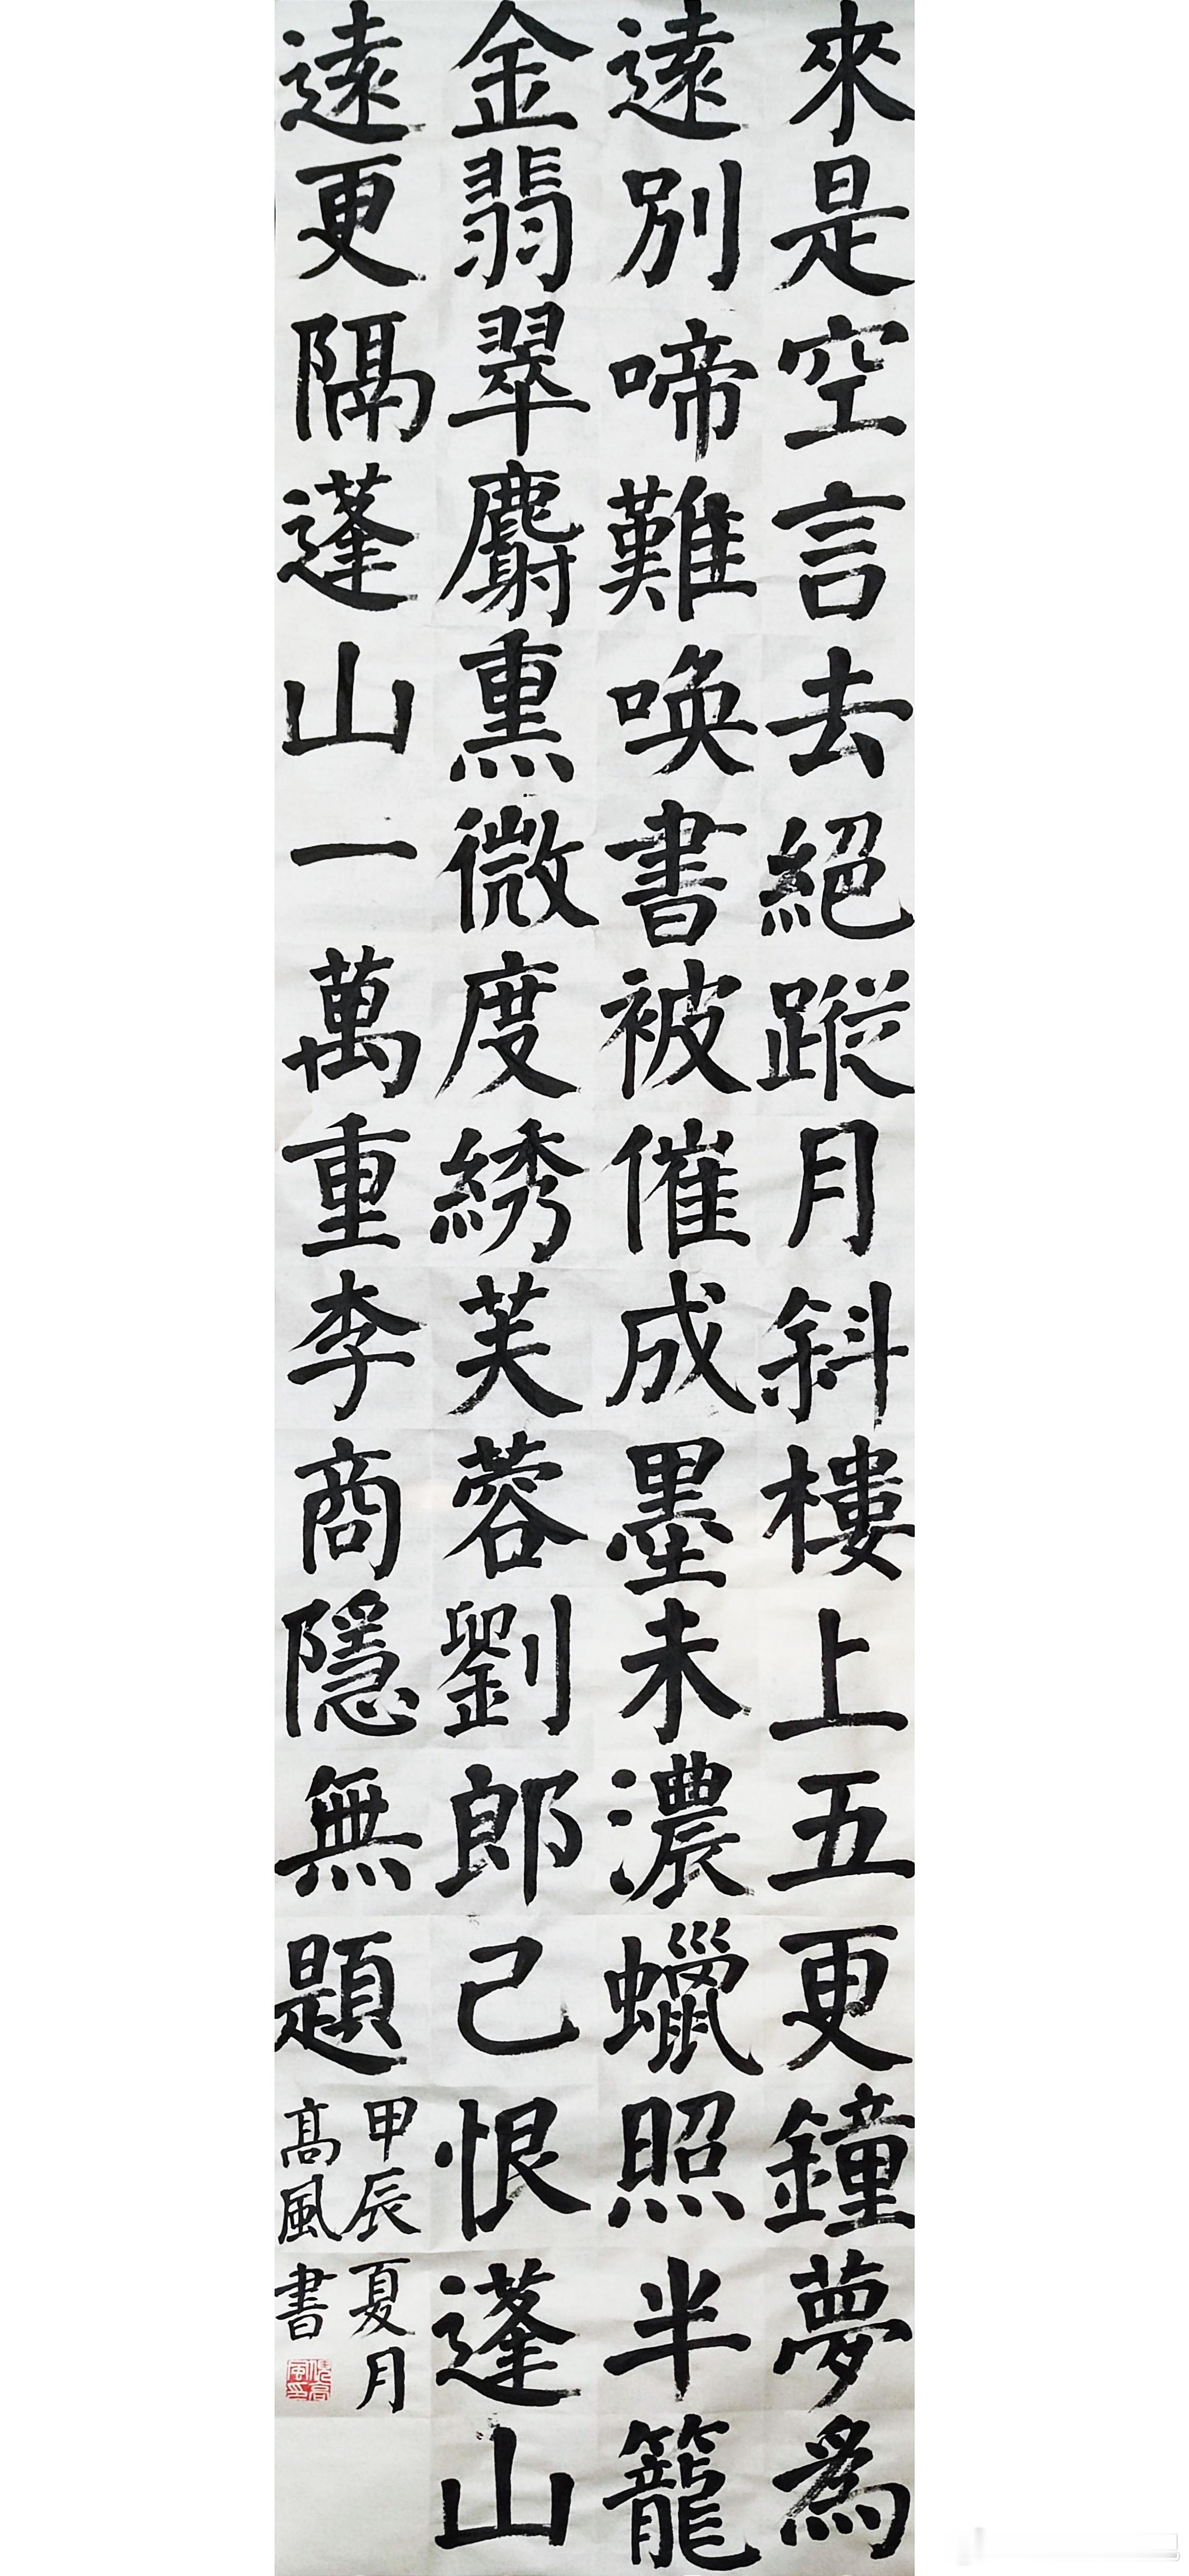 來是空言去絕蹤月斜樓上五更鐘夢為
遠別啼難喚書被催成墨未濃蠟照半籠
金翡翠麝熏微度綉芙蓉劉郎己恨蓬山
遠更隔蓬山一萬重李商隱無題
甲辰夏月
高風書